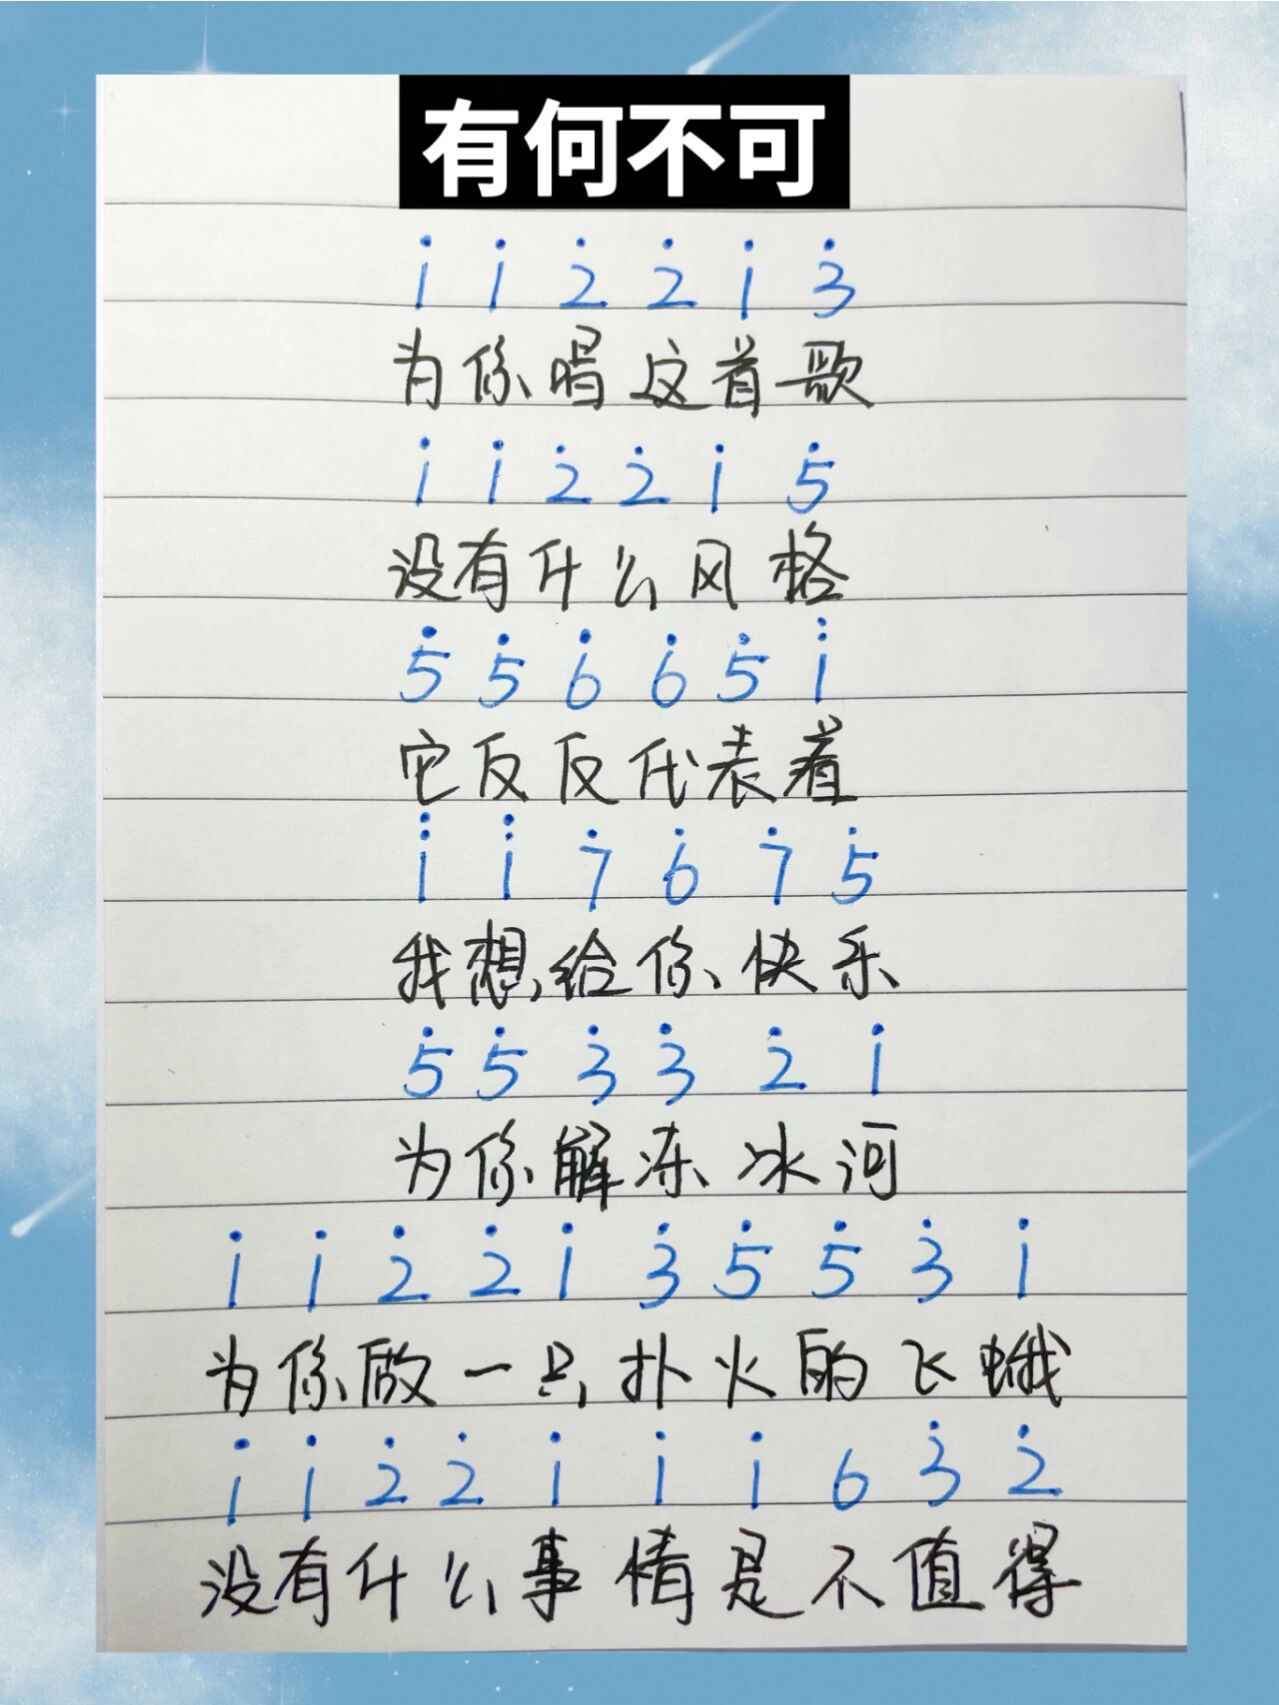 有何不可
1̇ 1̇ 2̇ 2̇ 1̇ 3̇
为你唱这首歌
1̇ 1̇ 2̇ 2̇ 1̇ 5̇
没有什么风格
5̇ 5̇ 6̇ 6̇ 5̇ 1̇̇
它仅仅代表着
1̇̇ 1̇̇ 7̇ 6̇ 7̇ 5̇
我想给你快乐
5̇ 5̇ 3̇ 3̇ 2̇ 1̇
为你解冻冰河
1̇ 1̇ 2̇ 2̇ 1̇ 3̇ 5̇ 5̇ 3̇ 1̇
为你做一只扑火的飞蛾
1̇ 1̇ 2̇ 2̇ 1̇ 1̇ 1̇ 6 3̇ 2̇
没有什么事情是不值得